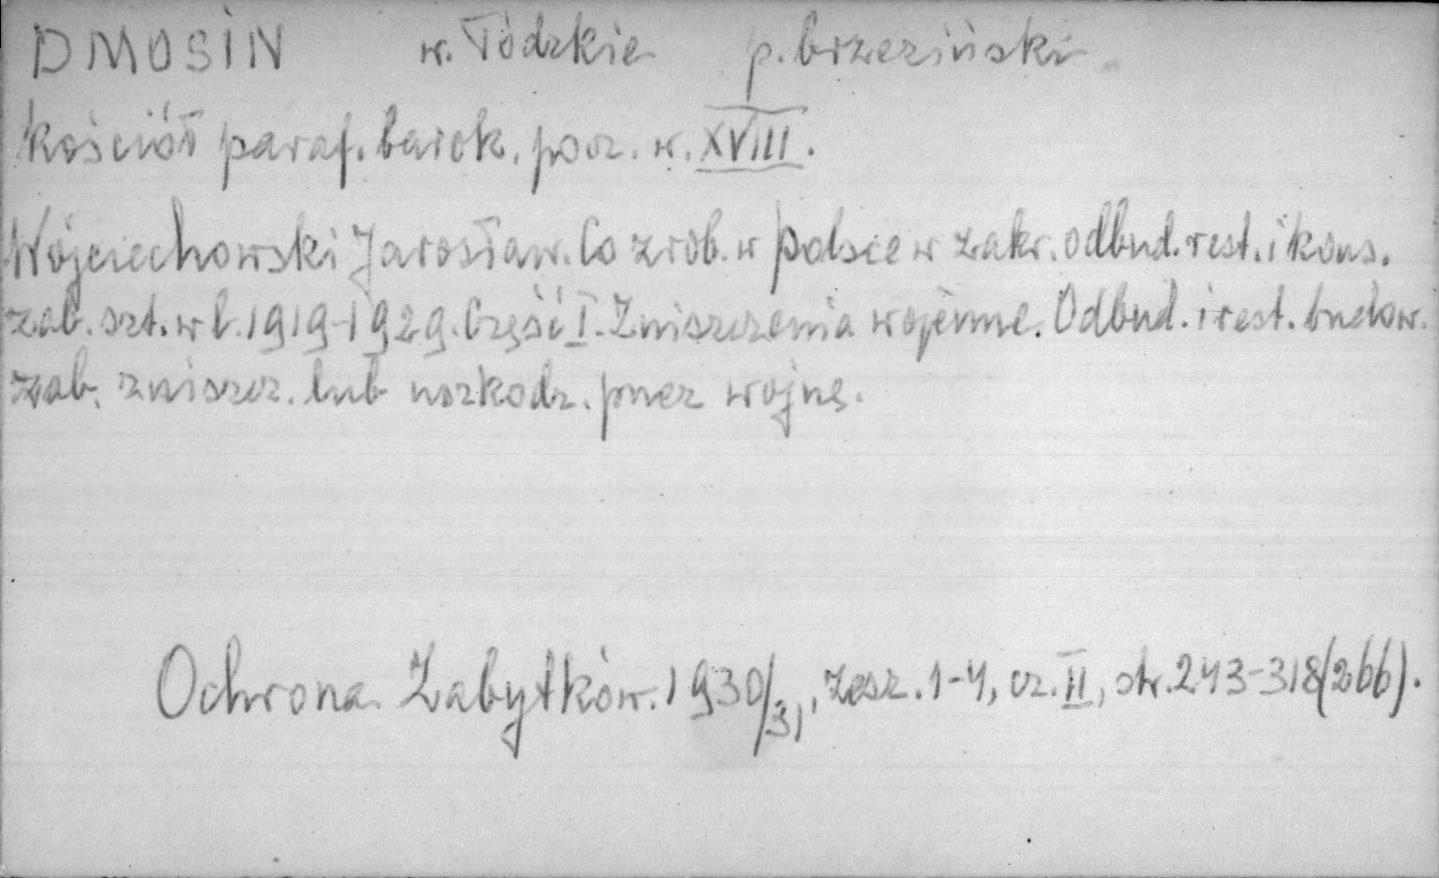 DMOSIN w. Łódzkie p. brzeziński
Kościół paraf. barok. pocz. w. XVIII.
Wojciechowski Jarosław. Co zrob. w Polsce w zakr. odbud. rest. i kons.
zab. szt. w l. 1919-1929. Część I. Zniszczenia wojenne. Odbud. i rest. budow.
zab. zniszcz. lub uszkodz. przez wojnę.
Ochrona Zabytków. 1930/31, zesz. 1-4, cz. II, str. 243-318 (266).